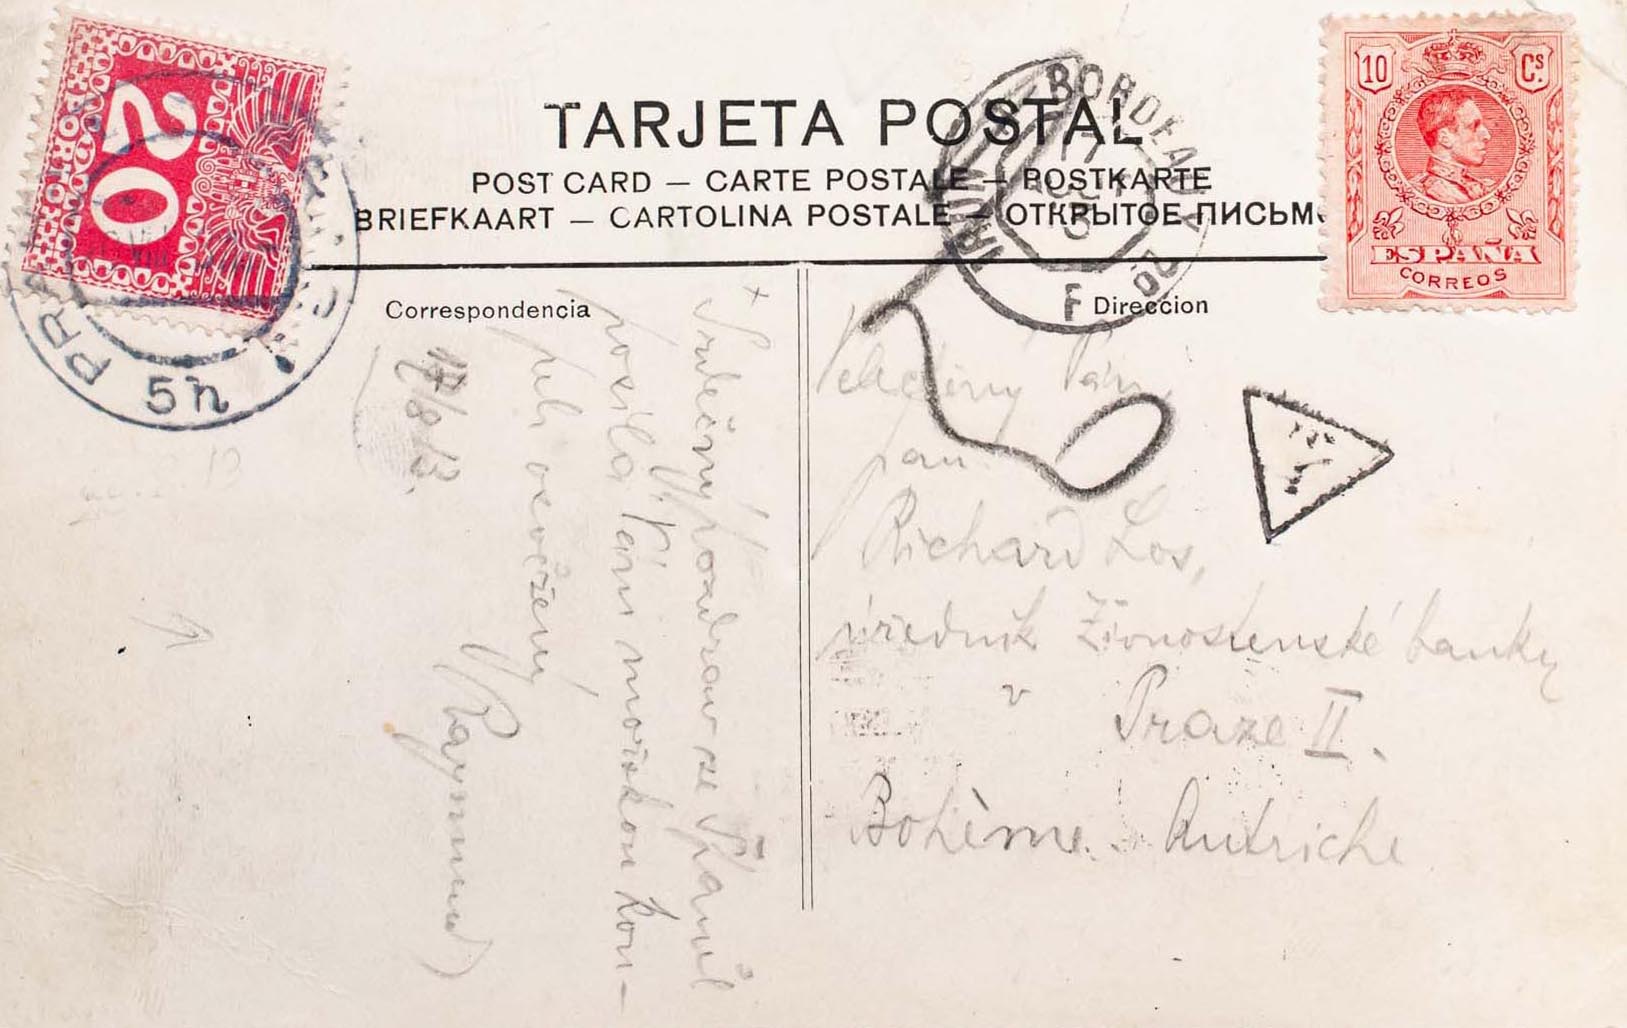 TARJETA POSTAL
POST CARD — CARTE POSTALE — POSTKARTE
BRIEFKAART — CARTOLINA POSTALE — ОТКРЫТОЕ ПИСЬМО
Correspondencia
Direccion
20
5n
10 Cs.
ESPAÑA
CORREOS
BORDEAUX
IRUN
Srdečný pozdrav ze Španěl
posílá Vám mořskou kou-
pelí osvěžený
Raymund
17/8 13.
Velectěný Pán,
pan
Richard Los,
úředník Živnostenské banky
v Praze II.
Bohème. Autriche
T